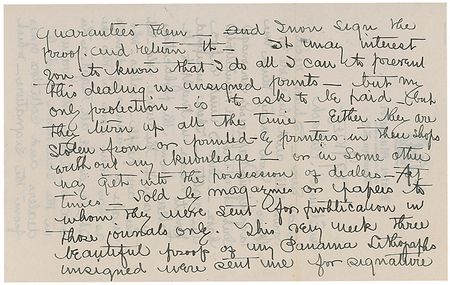 guarantees them — and I now sign the
proof. and return it — It may interest
you to know that I do all I can to prevent
this dealing in unsigned prints — but my
only protection — is to ask to be paid, but
they turn up all the time — Either they are
stolen from or printed by printers in their shops
without my knowledge — or in some other
way get into the possession of dealers — At
times — sold by magazines or papers to
whom they were sent for publication in
those journals only. This very week three
beautiful proofs of my Panama Lithographs
unsigned were sent me for signature